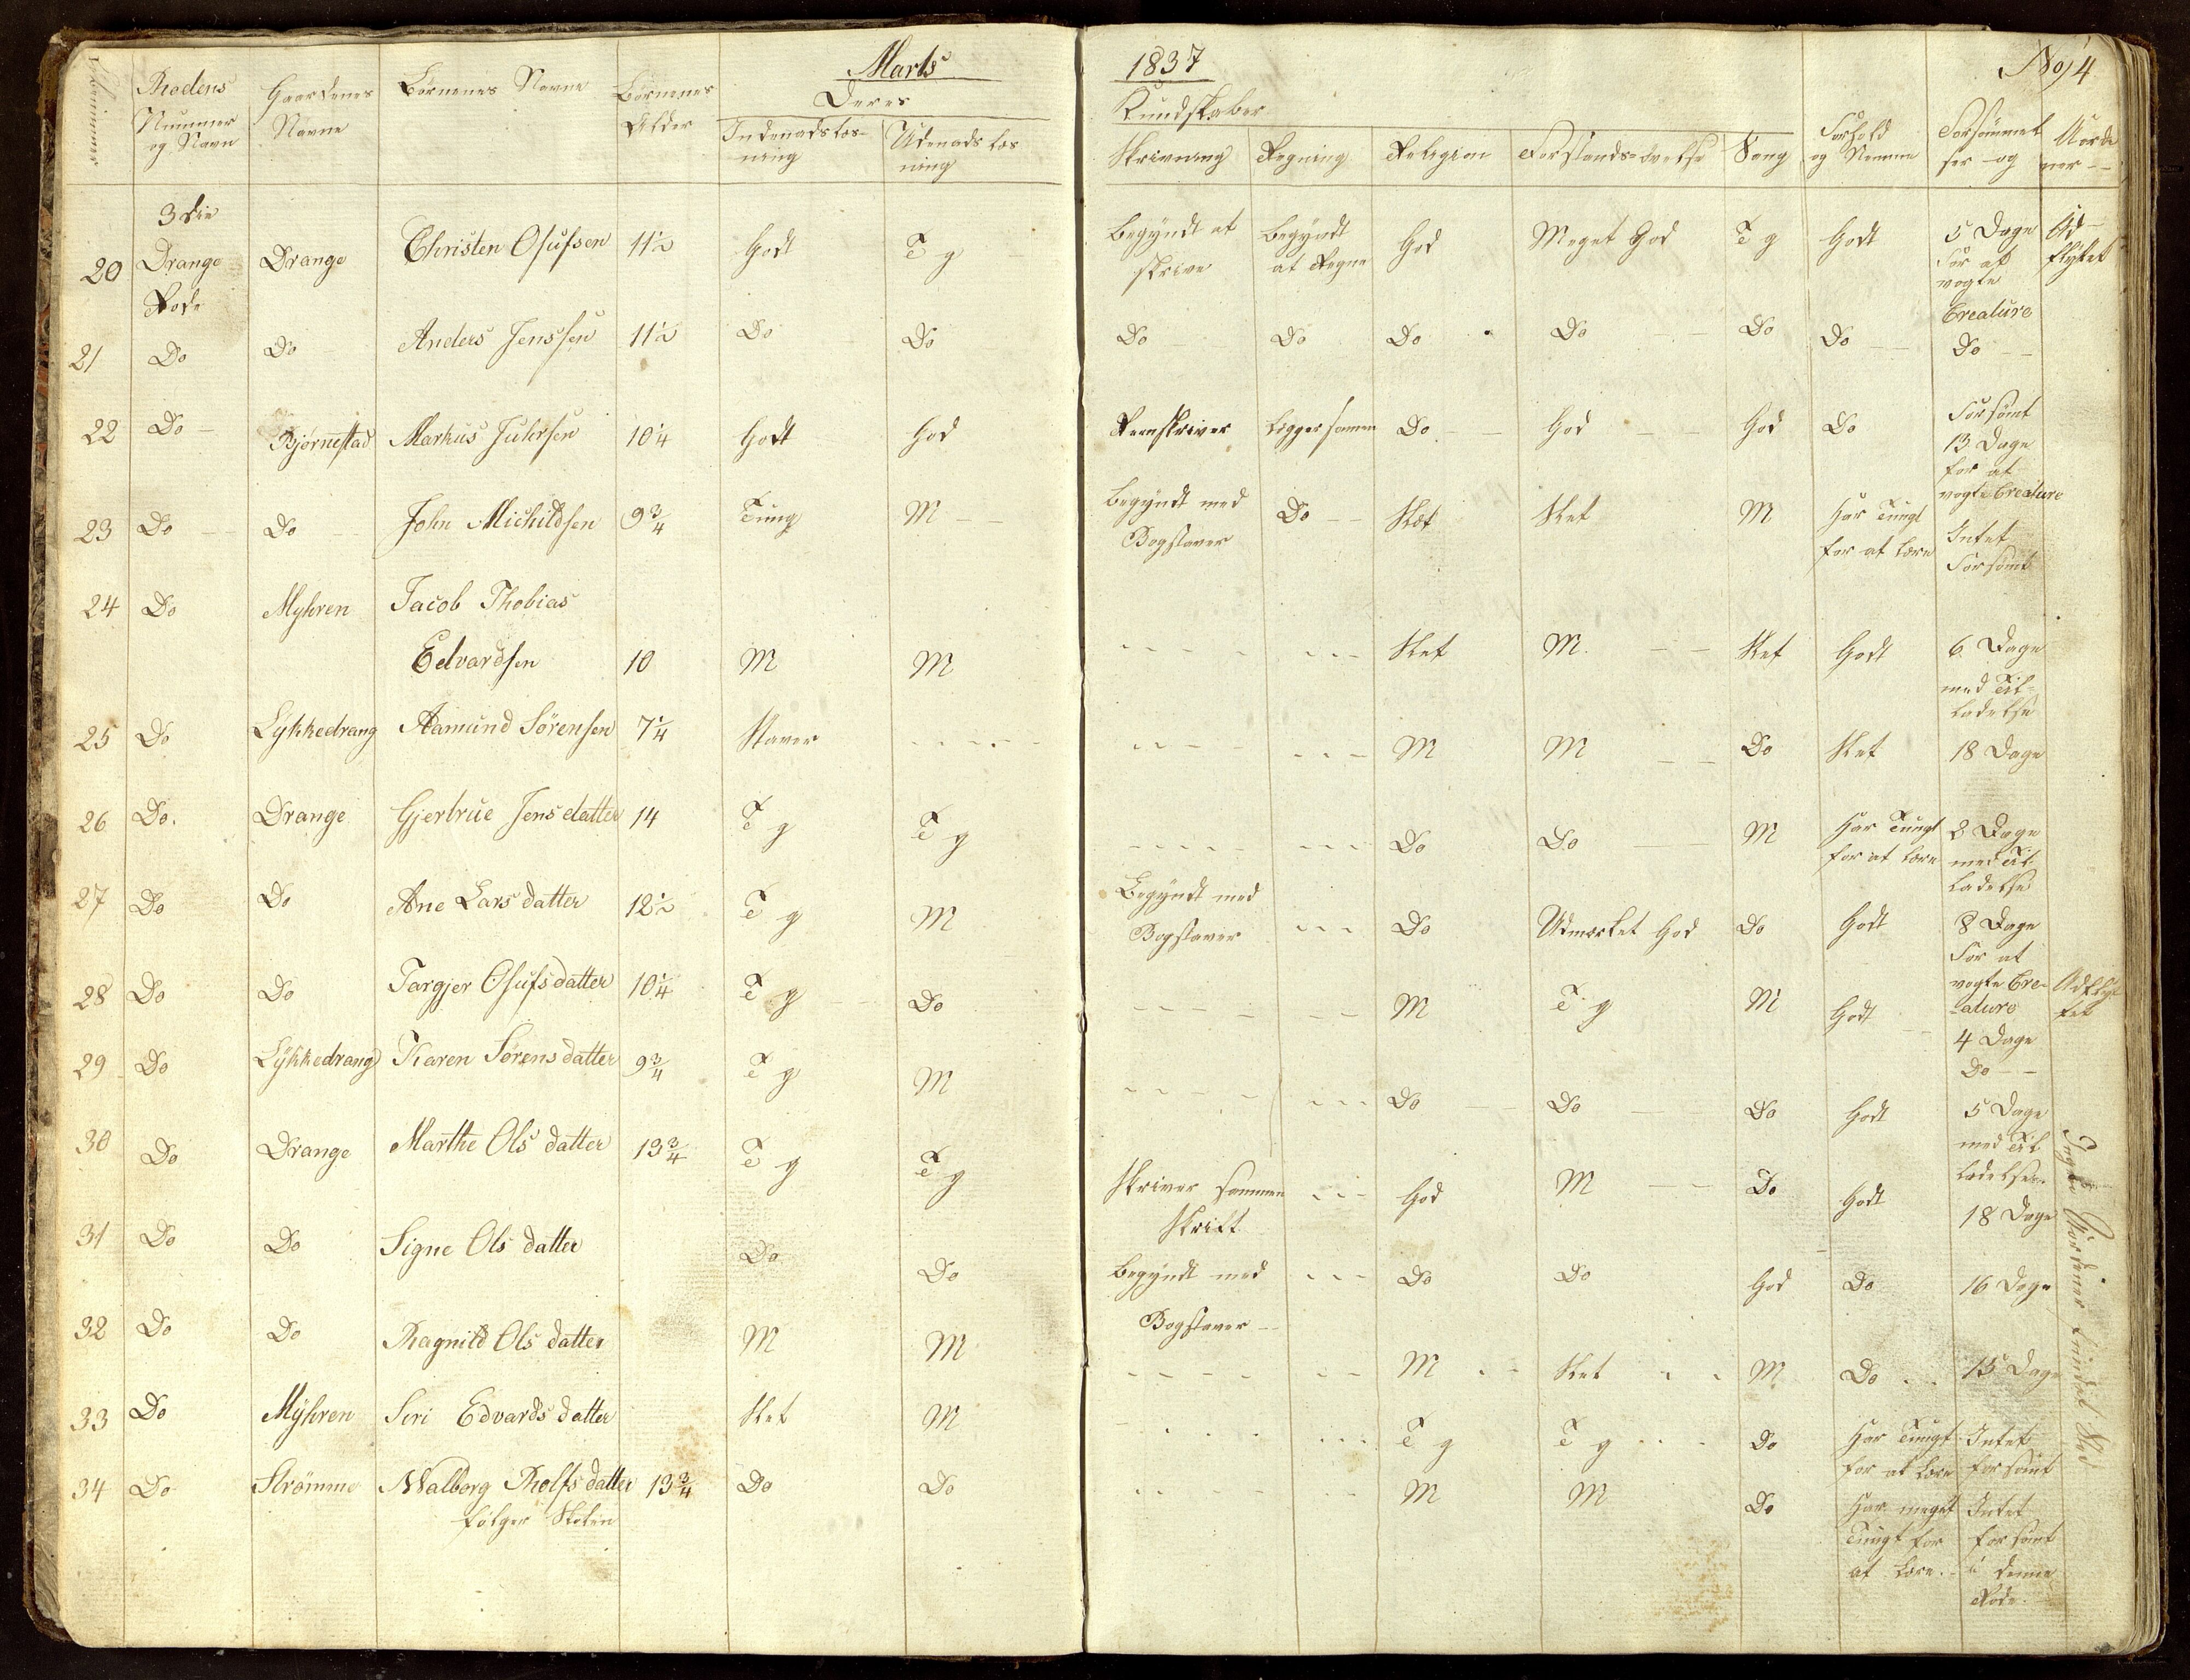 Marts
1837
No 4
Rodens Nummer og Navn | Gaardenes Navne | Børnenes Navne | Børnenes Alder | Deres Kundskaber
Indenadslæsning | Udenadslæsning | Skrivning | Regning | Religion | Forstands-Øvelse | Sang | Forhold og Nemme | Forsømmelser og
20 | 3die Drange Rode | Drange | Christen Olufsen | 11½ | Godt | T g | Begyndt at skrive | Begyndt at Regne | God | Meget God | T g | Godt | 5 Dage For at vogte Creature | Udflyttet
21 | Do | Do | Anders Jenssen | 11½ | Do | Do | Do | Do | Do | Do | Do | Do | Do
22 | Do | Bjørnestad | Markus Juhrsen | 10¼ | Godt | God | | Legger samen | Do | God | God | Do | Forsømt 13 Dage for at vogte Creature
23 | Do | Do | John Michildsen | 9¾ | Tung | M | Begyndt med Bogstaver | Do | Slet | Slet | M | Har Tungt for at lære | Intet Forsømt
24 | Do | Myhren | Jacob Thobias Edvardsen | 10 | M | M | - - - - | - - - | Slet | M. | Slet | Godt | 6 Dage med Tilladelse
25 | Do | Lykkedrang | Aamund Sörensen | 7¼ | Staver | - - - - | - - - - | - - - | M | M | Do | Slet | 18 Dage
26 | Do. | Drange | Gjertrue Jensdatter | 14 | T g | T g | - - - - | - - - | Do | Do | M | Har Tungt for at lære | 8 Dage med Tilladelse
27 | Do | Do | Ane Larsdatter | 12½ | T g | M | Begyndt med Bogstaver | - - - | Do | Udmærket God | Do | Godt | 8 Dage For at vogte Creature
28 | Do | Do | Targjer Olufsdatter | 10¼ | T g | Do | - - - - | - - | M | T g | M | Godt | 4 Dage Do | Udflyttet
29 | Do | Lykkedrang | Karen Sørensdatter | 9¾ | T g | M | - - - - | - - - | Do | Do | Do | Godt | 5 Dage med Tilladelse
30 | Do | Drange | Marthe Olsdatter | 13¾ | T g | T g | Skriver sammen Skrift | - - - | God | M | Do | Godt | 18 Dage
31 | Do | Do | Signe Olsdatter | | Do | Do | Begyndt med Bogstaver | - - - | Do | Do | God | Do | 16 Dage
32 | Do | Do | Ragnild Olsdatter | | M | M | - - - - | - - | M | Slet | M | Do | 15 Dage
33 | Do | Myhren | Siri Edvardsdatter | | Slet | M | - - - - | - - - | T g | T g | Do | Har Tungt for at lære | Intet forsømt
34 | Do | Strömme | Walborg Rolfsdatter følger Skolen | 13¾ | Do | Do | - - - - | - - | M | M | Do | Har meget Tungt for at lære. | Intet forsømt i denne Rode.